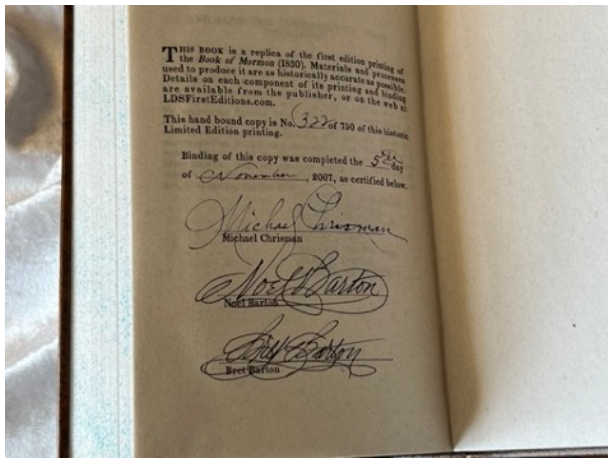 THIS BOOK is a replica of the first edition printing of
the Book of Mormon (1830). Materials and processes
used to produce it are as historically accurate as possible.
Details on each component of its printing and binding
are available from the publisher, or on the web at
LDSFirstEditions.com.
This hand bound copy is No. 322 of 750 of this historic
Limited Edition printing.
Binding of this copy was completed the 5th day
of November, 2007, as certified below.
Michael Chrisman
Michael Chrisman
Noel Barton
Noel Barton
Bret Barton
Bret Barton